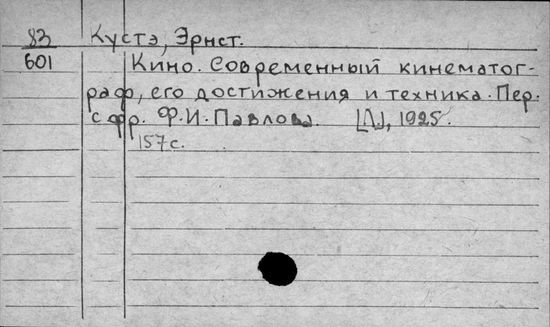 83 Кустэ, Эрнст.
601 Кино. Современный кинематог-
раф, его достижения и техника. Пер.
с фр. Ф.И.Павлова. [Л], 1925.
157с.